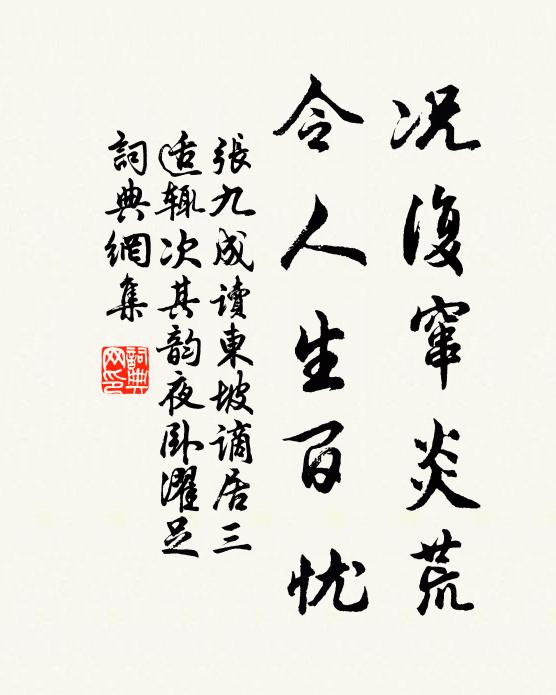 况復窜炎荒
令人生百忧
張九成讀東坡謫居三
适辄次其韵夜卧濯足
詞典網集
詞典网印